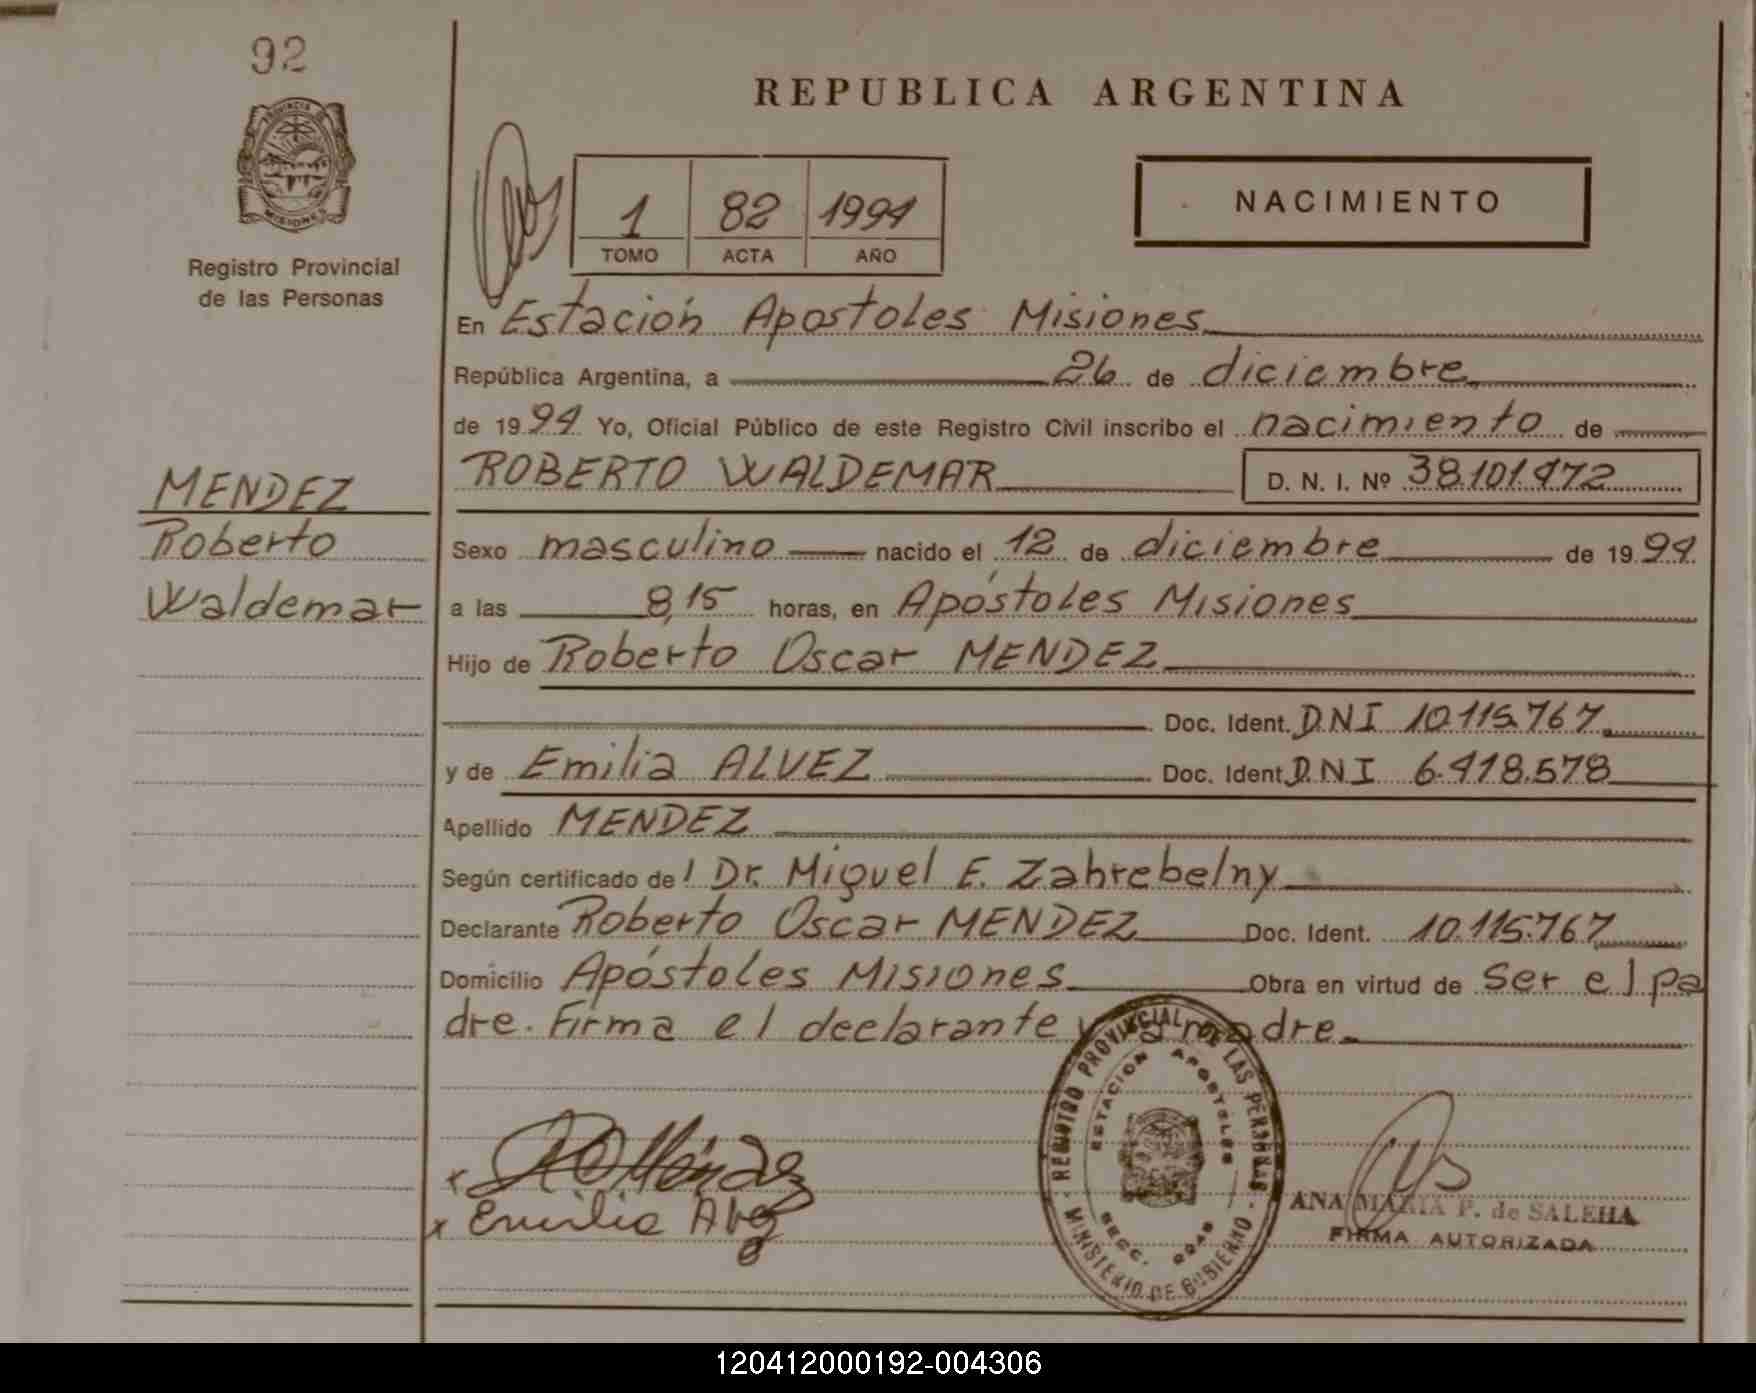 92
PROVINCIA DE
MISIONES
Registro Provincial
de las Personas
MENDEZ
Roberto
Waldemar
REPUBLICA ARGENTINA
1 82 1994
TOMO ACTA AÑO
NACIMIENTO
En Estación Apostoles Misiones
República Argentina, a 26 de diciembre
de 1994 Yo, Oficial Público de este Registro Civil inscribo el nacimiento de
ROBERTO WALDEMAR D. N. I. Nº 38.101.472
Sexo masculino nacido el 12 de diciembre de 1994
a las 8,15 horas, en Apóstoles Misiones
Hijo de Roberto Oscar MENDEZ
Doc. Ident. DNI 10.115.767
y de Emilia ALVEZ Doc. Ident. DNI 6.418.578
Apellido MENDEZ
Según certificado del Dr. Miguel E. Zahrebelny
Declarante Roberto Oscar MENDEZ Doc. Ident. 10.115.767
Domicilio Apóstoles Misiones Obra en virtud de ser el pa
dre. Firma el declarante y la madre.
REGISTRO PROVINCIAL DE LAS PERSONAS
ESTACION APOSTOLES
SECC. 0048
MINISTERIO DE GOBIERNO
x ROMéndez
x Emilia Alvez
ANA MARIA P. de SALEHA
FIRMA AUTORIZADA
120412000192-004306